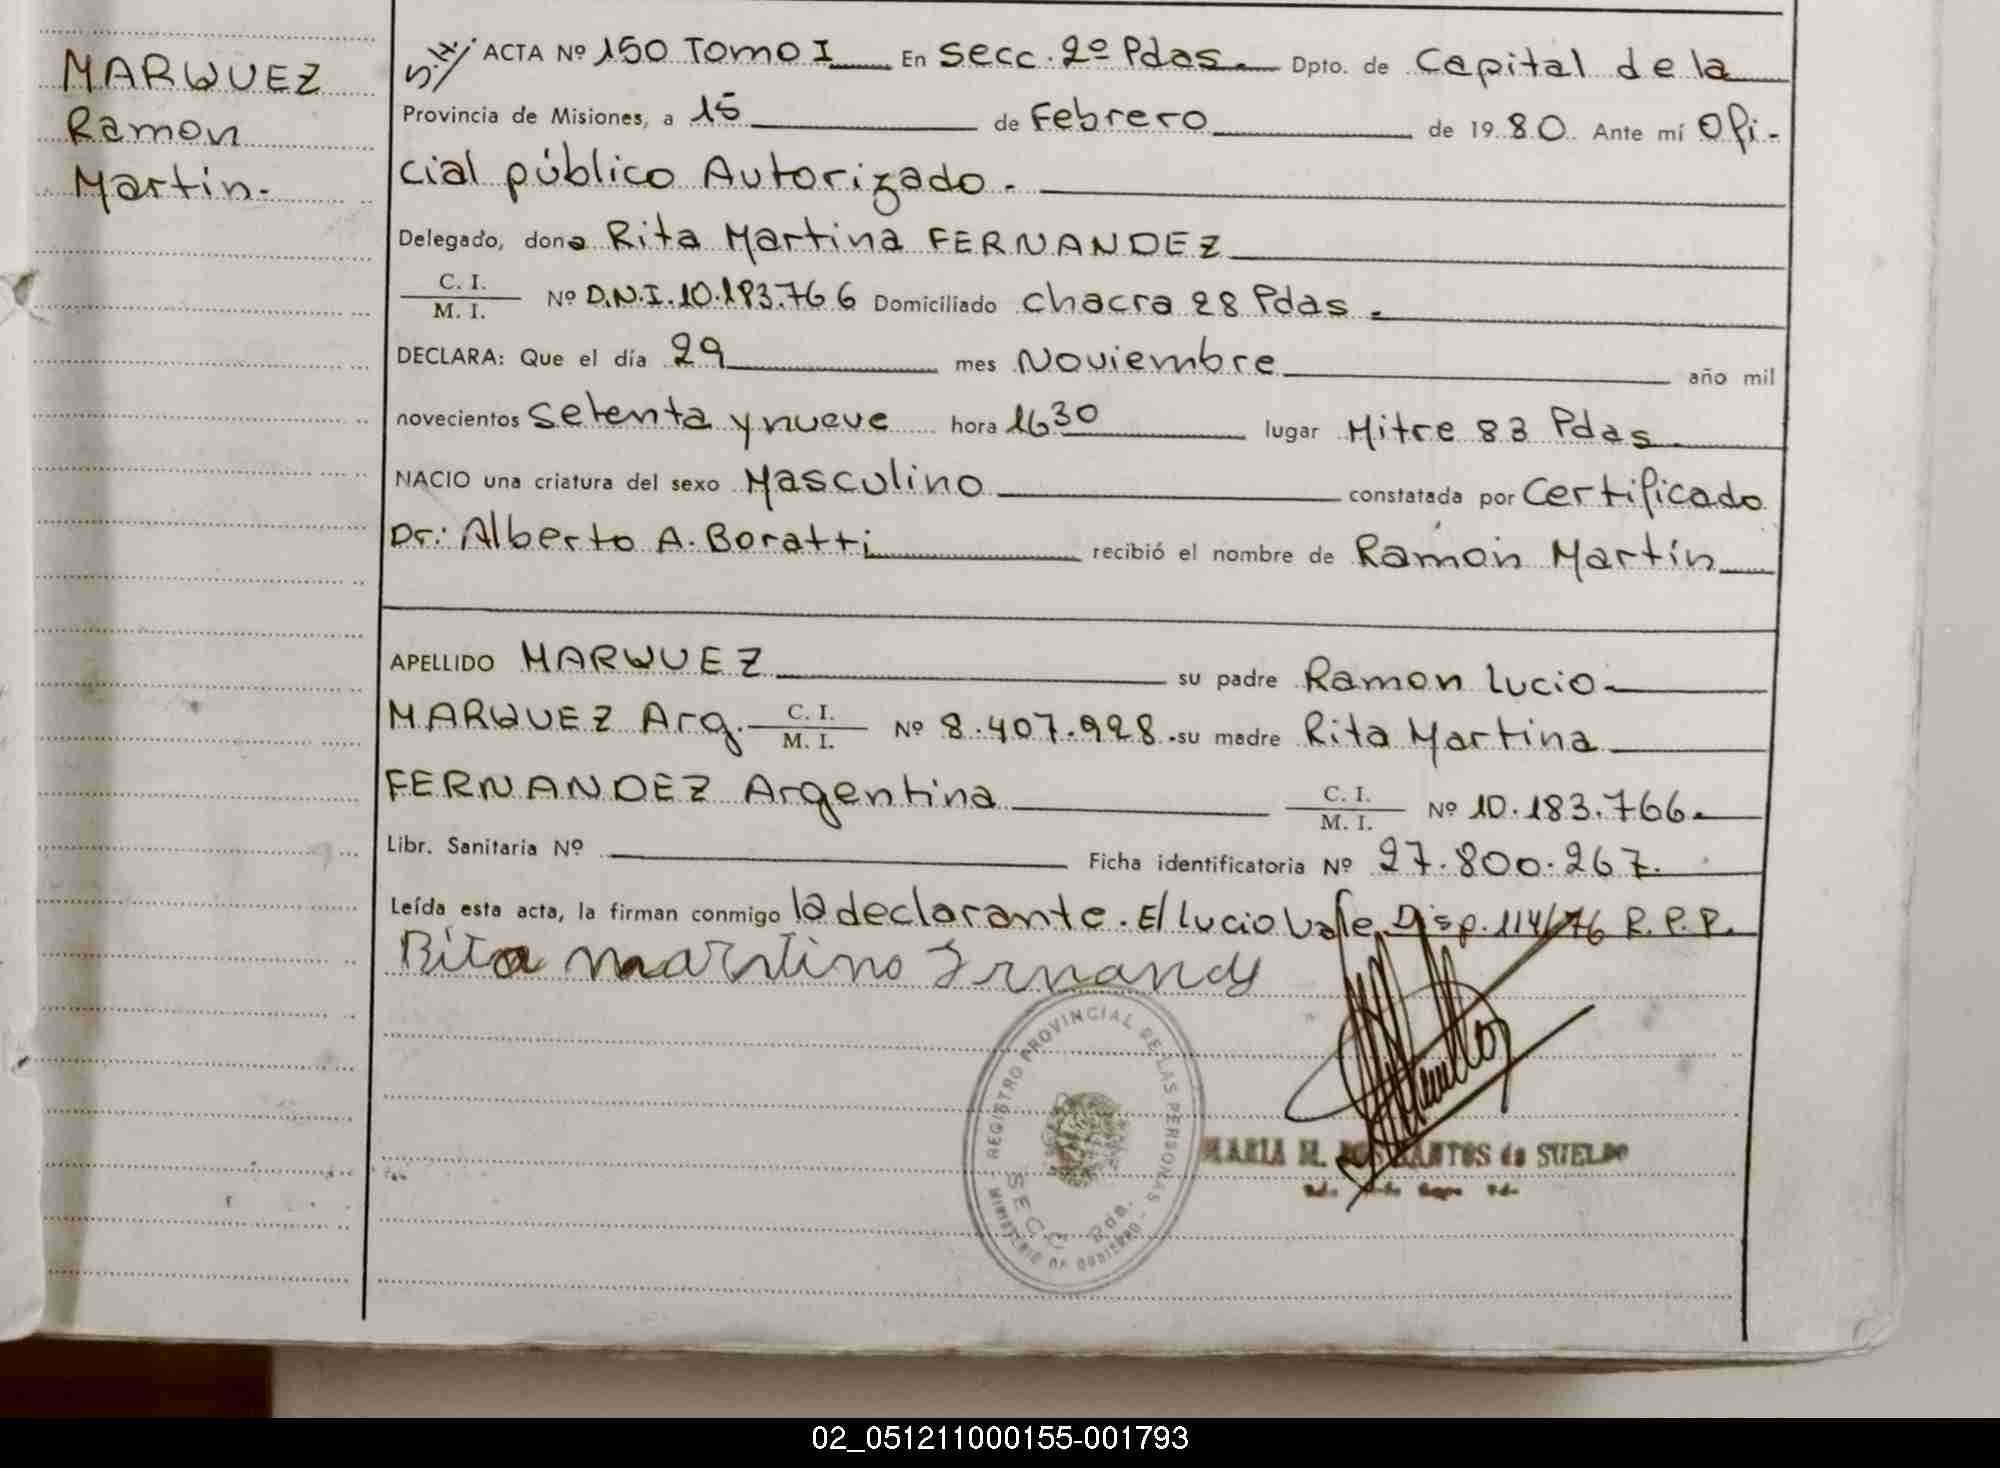 MARQUEZ
Ramon
Martin.-
S.H/. ACTA Nº 150 Tomo I En Secc. 2º Pdas. Dpto. de Capital de la
Provincia de Misiones, a 15 de Febrero de 1980. Ante mí Ofi-
cial público Autorizado.-
Delegado, dona Rita Martina FERNANDEZ
C. I.
M. I. Nº D.N.I. 10.183.766 Domiciliado chacra 28 Pdas.
DECLARA: Que el día 29 mes Noviembre año mil
novecientos Setenta y nueve hora 16 30 lugar Mitre 83 Pdas.
NACIO una criatura del sexo Masculino constatada por Certificado
Dr: Alberto A. Boratti recibió el nombre de Ramón Martín
APELLIDO MARQUEZ su padre Ramon Lucio
MARQUEZ Arg. C. I. M. I. Nº 8.407.928. su madre Rita Martina
FERNANDEZ Argentina C. I. M. I. Nº 10.183.766.
Libr. Sanitaria Nº Ficha identificatoria Nº 27.800.267.
Leída esta acta, la firman conmigo la declarante. El Lucio Vale Disp. 114/76 R.P.P.
Rita martina
REGISTRO PROVINCIAL DE LAS PERSONAS
MINISTERIO DE GOBIERNO
SECC. 2da.
MARIA M. DOS SANTOS de SUELDO
02_051211000155-001793